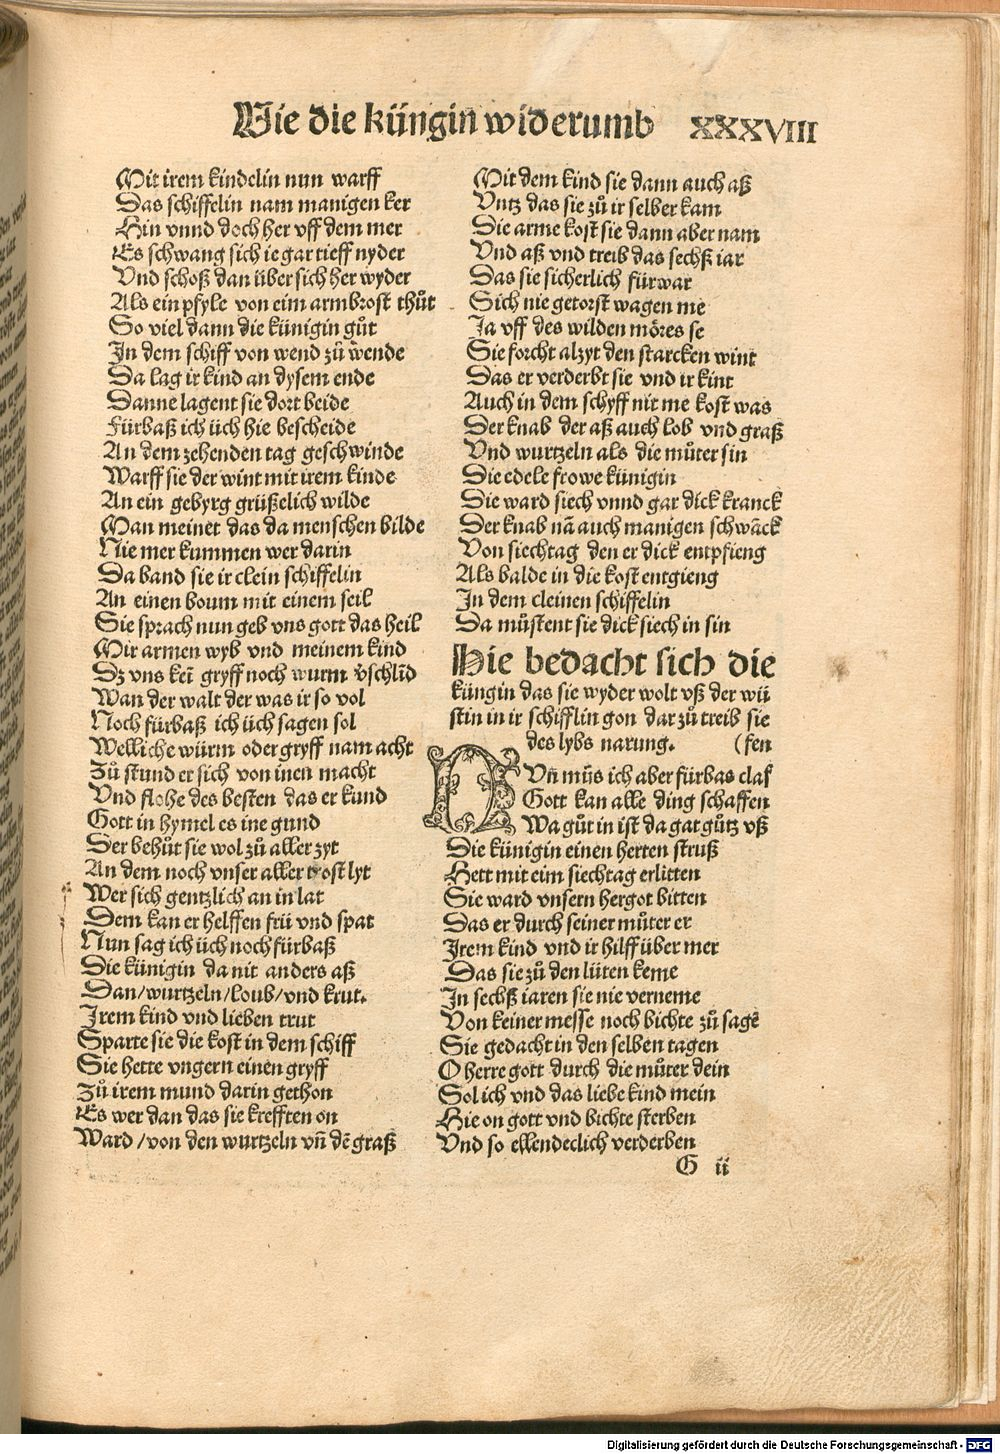 Wie die küngin widerumb XXXVIII
Mit irem kindelin nun warff
Das schiffelin nam manigen ker
Hin vnnd doch her vff dem mer
Es schwang sich ie gar tieff nyder
Vnd schoß dan über sich her wyder
Als ein pfyle von eim armbrost thůt
So viel dann die künigin gůt
In dem schiff von wend zů wende
Da lag ir kind an dysem ende
Danne lagent sie dort beide
Fürbaß ich üch hie bescheide
An dem zehenden tag geschwinde
Warff sie der wint mit irem kinde
An ein gebyrg grüßelich wilde
Man meinet das da menschen bilde
Nie mer kummen wer darin
Da band sie ir clein schiffelin
An einen boum mit einem seil
Sie sprach nun geb vns gott das heil
Mir armen wyb vnd meinem kind
Dz vns kei͂ gryff noch wurm v̈schli͂d
Wan der walt der was ir so vol
Noch fürbaß ich üch sagen sol
Welliche würm oder gryff nam acht
Zů stund er sich von inen macht
Vnd flohe des besten das er kund
Gott in hymel es ine gund
Der behůt sie wol zů aller zyt
An dem noch vnser aller trost lyt
Wer sich gentzlich an in lat
Dem kan er helffen frü vnd spat
Nun sag ich üch noch fürbaß
Die künigin da nit anders aß
Dan/wurtzeln/loub/vnd krut.
Irem kind vnd lieben trut
Sparte sie die kost in dem schiff
Sie hette vngern einen gryff
Zů irem mund darin gethon
Es wer dan das sie krefften on
Ward/von den wurtzeln vn͂ de͂ graß
Mit dem kind sie dann auch aß
Vntz das sie zů ir selber kam
Die arme kost sie dann aber nam
Vnd aß vnd treib das sechß iar
Das sie sicherlich fürwar
Sich nie getorst wagen me
Ja vff des wilden möres se
Sie forcht alzyt den starcken wint
Das er verderbt sie vnd ir kint
Auch in dem schyff nit me kost was
Der knab der aß auch lob vnd graß
Vnd wurtzeln als die můter sin
Die edele frowe künigin
Die ward siech vnnd gar dick kranck
Der knab na͂ auch manigen schwa͂ck
Von siechtag den er dick entpfieng
Als balde in die kost entgieng
In dem cleinen schiffelin
Da můstent sie dick siech in sin
Hie bedacht sich die
küngin das sie wyder wolt vß der wü
stin in ir schifflin gon dar zů treib sie
des lybs narung. (fen
NVn͂ můs ich aber fürbas claf
Gott kan alle ding schaffen
Wa gůt in ist da gat gůtz vß
Die künigin einen herten struß
Hett mit eim siechtag erlitten
Sie ward vnsern hergot bitten
Das er durch seiner můter er
Irem kind vnd ir hilff über mer
Das sie zů den lüten keme
In sechß iaren sie nie verneme
Von keiner messe noch bichte zů sage͂
Sie gedacht in den selben tagen
O herre gott durch die můter dein
Sol ich vnd das liebe kind mein
Hie on gott vnd bichte sterben
Vnd so ellendeclich verderben
G ii
Digitalisierung gefördert durch die Deutsche Forschungsgemeinschaft - DFG